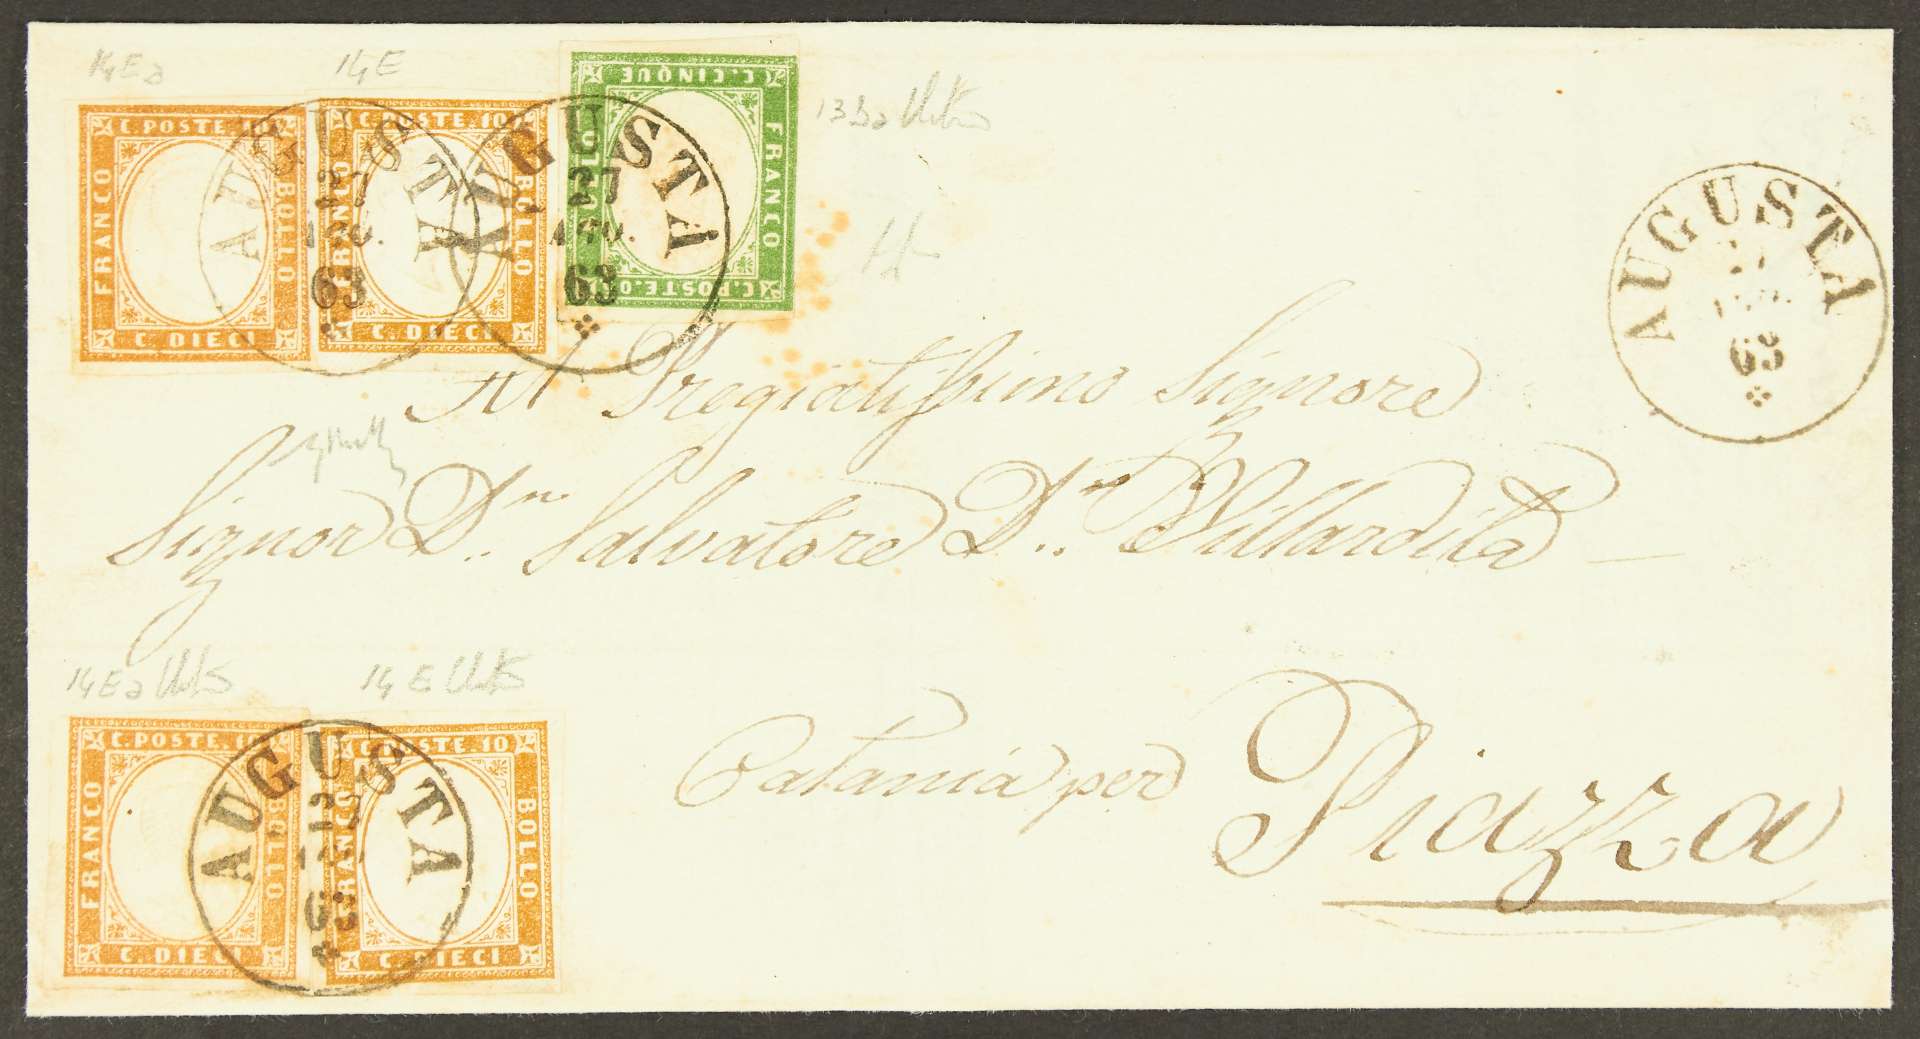 14Ea
14E
C. POSTE. 10
FRANCO
BOLLO
C. DIECI
C. POSTE. 10
FRANCO
BOLLO
C. DIECI
C. POSTE. 05
FRANCO
BOLLO
C. CINQUE
13Da
AUGUSTA
27
AGO.
63
AUGUSTA
27
AGO.
63
AUGUSTA
63
Al Pregiatissimo Signore
Signor Dn. Salvatore Dr. Villardita
14Ea
14E
C. POSTE. 10
FRANCO
BOLLO
C. DIECI
C. POSTE. 10
FRANCO
BOLLO
C. DIECI
AUGUSTA
27
AGO.
63
Catania per Piazza